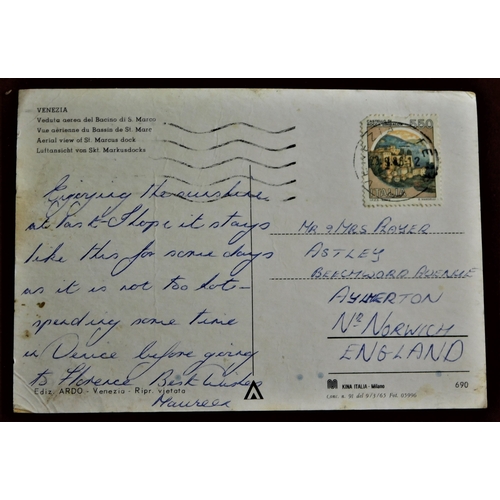 VENEZIA
Veduta aerea del Bacino di S. Marco
Vue aérienne du Bassin de St. Marc
Aerial view of St. Marcus dock
Luftansicht von Skt. Markusdocks
550
Enjoying the sunshine
at last - I hope it stays
like this for some days
as it is not too hot -
spending some time
in Venice before going
to Florence Best Wishes
Maureen
MR & MRS PLAYER
ASTLEY
BEECHWOOD AVENUE
AYLMERTON
Nr NORWICH
ENGLAND
Ediz. ARDO - Venezia - Ripr. vietata
KINA ITALIA - Milano
690